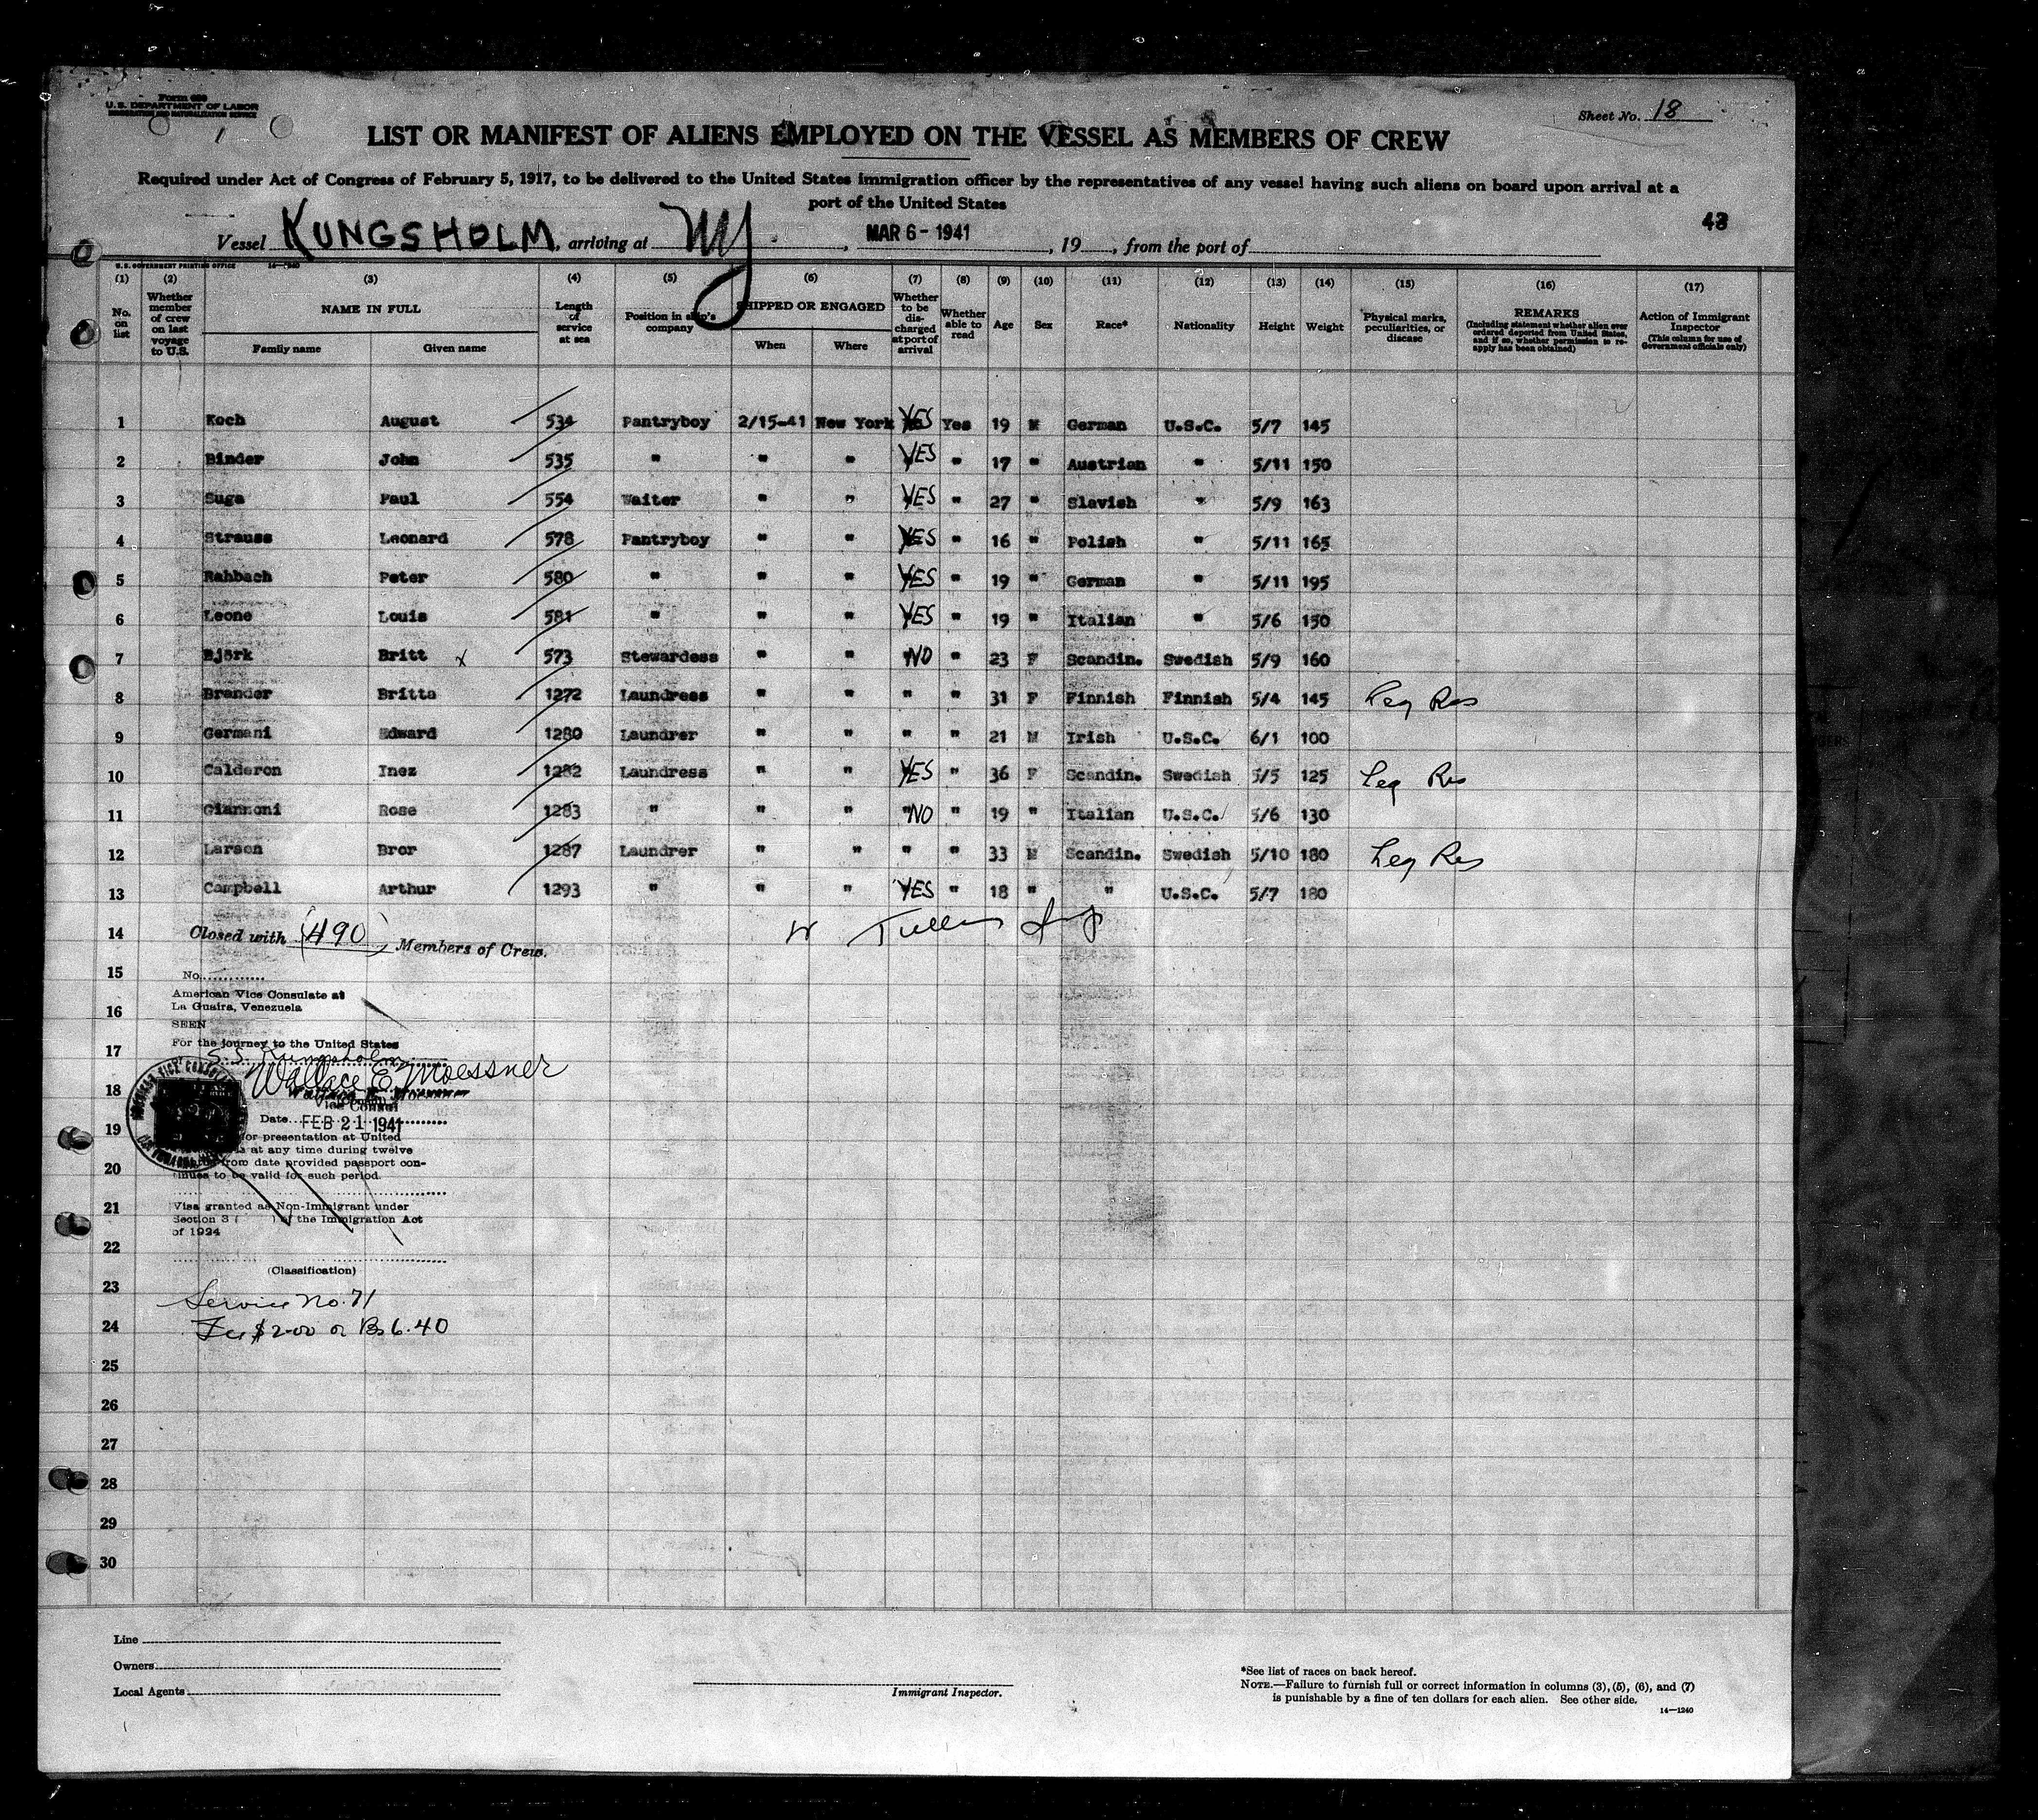 Form 680
U.S. DEPARTMENT OF LABOR
IMMIGRATION AND NATURALIZATION SERVICE
Sheet No. 18
LIST OR MANIFEST OF ALIENS EMPLOYED ON THE VESSEL AS MEMBERS OF CREW
Required under Act of Congress of February 5, 1917, to be delivered to the United States immigration officer by the representatives of any vessel having such aliens on board upon arrival at a
port of the United States
43
Vessel KUNGSHOLM, arriving at NY., MAR 6 - 1941, 19, from the port of
U.S. GOVERNMENT PRINTING OFFICE 14—1240
(1) (2) (3) (4) (5) (6) (7) (8) (9) (10) (11) (12) (13) (14) (15) (16) (17)
No. on list
Whether member of crew on last voyage to U.S.
NAME IN FULL
Family name Given name
Length of service at sea
Position in ship's company
SHIPPED OR ENGAGED
When Where
Whether to be discharged at port of arrival
Whether able to read
Age Sex Race* Nationality Height Weight
Physical marks, peculiarities, or disease
REMARKS
(Including statement whether alien ever ordered deported from United States, and if so, whether permission to reapply has been obtained)
Action of Immigrant Inspector
(This column for use of Government officials only)
1 Koch August 534 Pantryboy 2/15-41 New York YES Yes 19 M German U.S.C. 5/7 145
2 Binder John 535 " " " YES " 17 " Austrian " 5/11 150
3 Suga Paul 554 Waiter " " YES " 27 " Slavish " 5/9 163
4 Strauss Leonard 578 Pantryboy " " YES " 16 " Polish " 5/11 165
5 Rahbach Peter 580 " " " YES " 19 " German " 5/11 195
6 Leone Louis 581 " " " YES " 19 " Italian " 5/6 150
7 Björk Britt x 573 Stewardess " " NO " 23 F Scandin. Swedish 5/9 160
8 Brander Britta 1272 Laundress " " " " 31 F Finnish Finnish 5/4 145 Leg Res
9 Germani Edward 1280 Laundrer " " " " 21 M Irish U.S.C. 6/1 100
10 Calderon Inez 1282 Laundress " " YES " 36 F Scandin. Swedish 5/5 125 Leg Res
11 Giannoni Rose 1283 " " " NO " 19 " Italian U.S.C. 5/6 130
12 Larsen Bror 1287 Laundrer " " " " 33 M Scandin. Swedish 5/10 180 Leg Res
13 Campbell Arthur 1293 " " " YES " 18 " " U.S.C. 5/7 180
14 Closed with (490) Members of Crew.
15
No.
American Vice Consulate at
16 La Guaira, Venezuela
SEEN
17 For the journey to the United States
S.S. Kungsholm
Wallace E. Moessner
18
Vice Consul
19 Date FEB 21 1941
for presentation at United
at any time during twelve
20 from date provided passport con-
tinues to be valid for such period.
21 Visa granted as Non-Immigrant under
Section 3 ( ) of the Immigration Act
of 1924
22
(Classification)
23 Service No. 71
24 Fee $2.00 or Bs 6.40
25
26
27
28
29
30
Line
Owners
Local Agents
Immigrant Inspector.
*See list of races on back hereof.
NOTE.—Failure to furnish full or correct information in columns (3), (5), (6), and (7)
is punishable by a fine of ten dollars for each alien. See other side.
14—1240